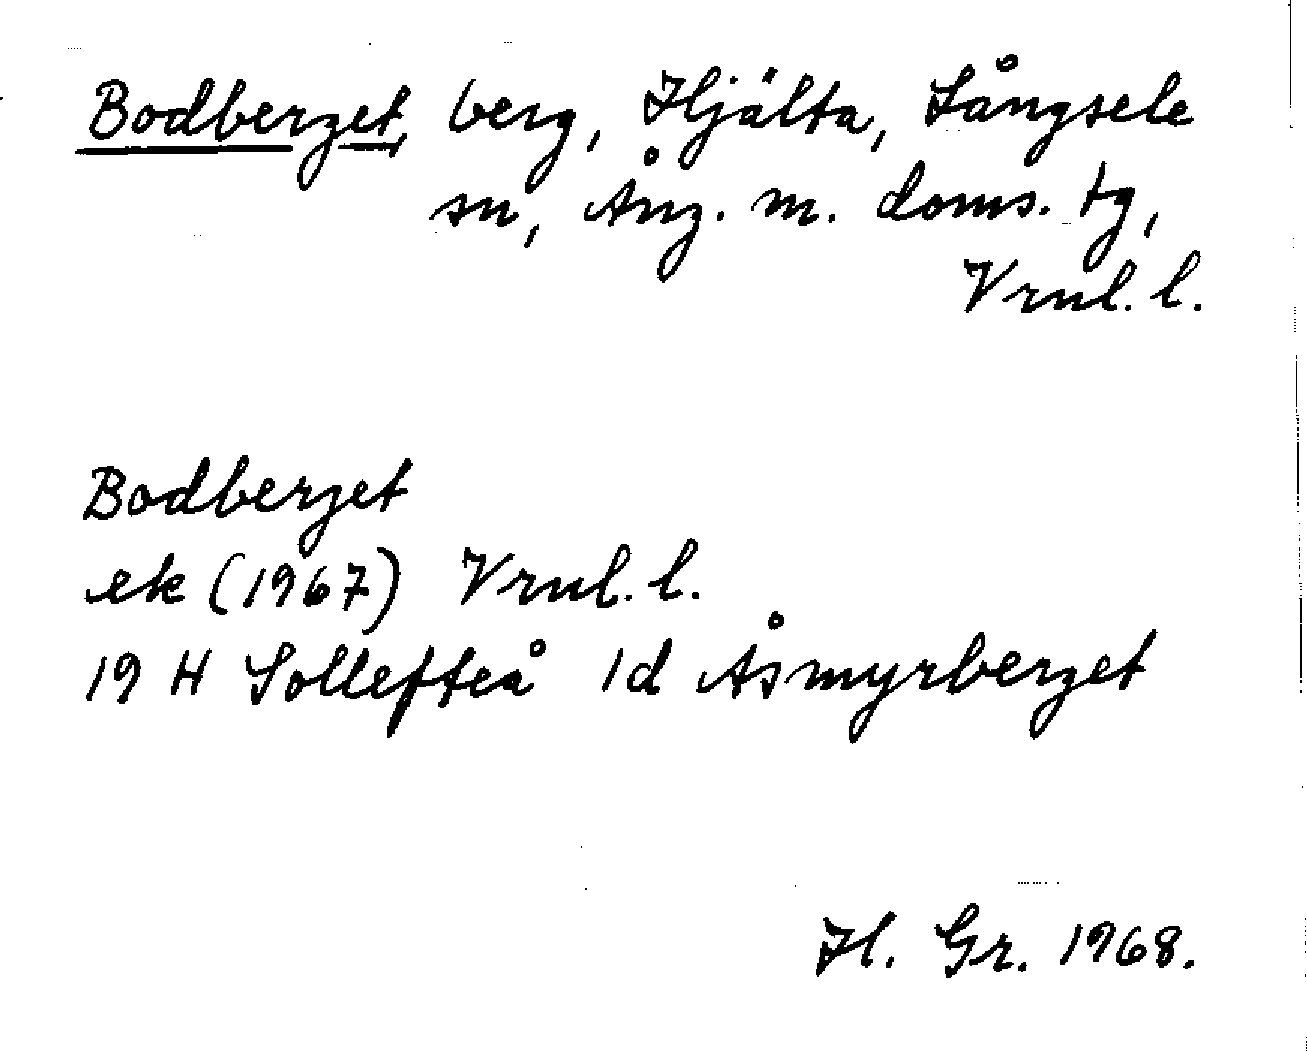 Bodberget, berg, Hjälta, Långsele
sn, Ång. m. doms. tg,
Vrnl. l.
Bodberget
ek (1967) Vrnl. l.
19 H Sollefteå 1d Åsmyrberget
H. Gr. 1968.